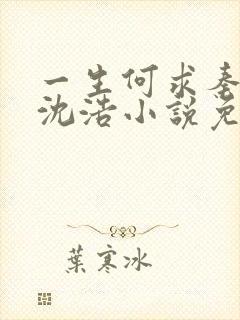 一生何求秦
沈浩小說免
葉寒冰